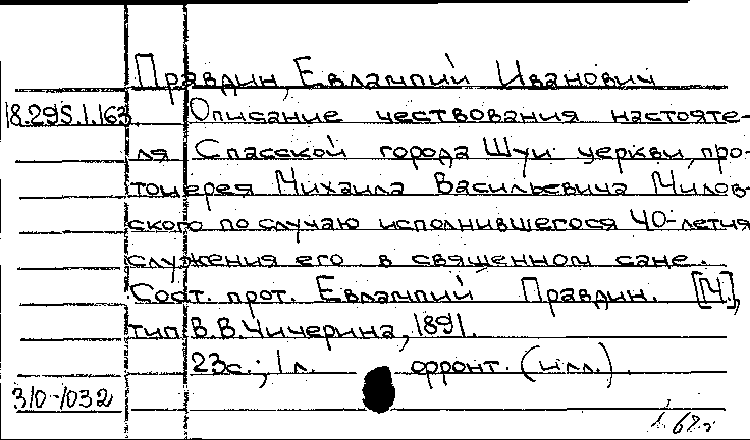 Правдин, Евлампий Иванович
18.295.1.163. Описание чествования настояте-
ля Спасской города Шуи церкви, про-
тоиерея Михаила Васильевича Милов-
ского по случаю исполнившегося 40-летия
служения его в священном сане.
Сост. прот. Евлампий Правдин. [М.],
тип. В.В. Чичерина, 1891.
23с.; 1л. фронт. (илл.).
310-1032